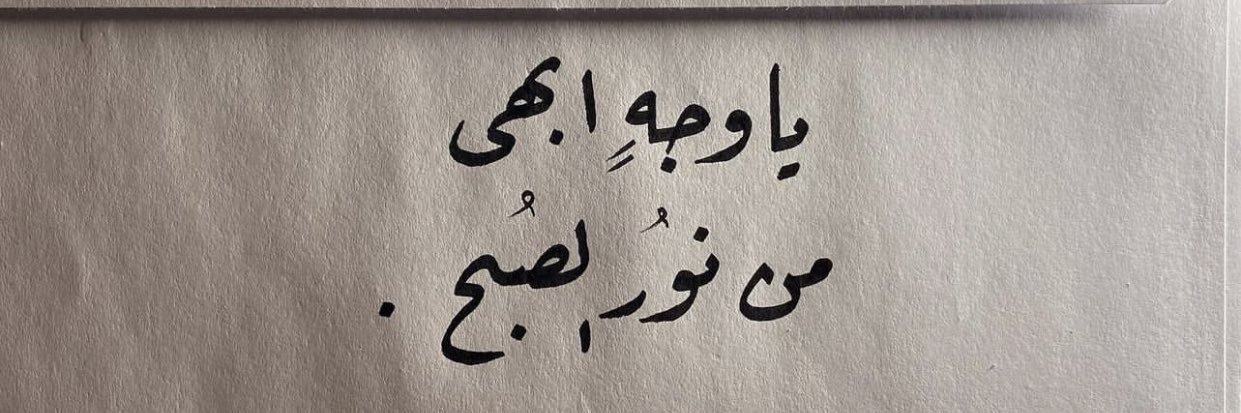 يا وجهٍ ابهى
من نوُر الصُبح .